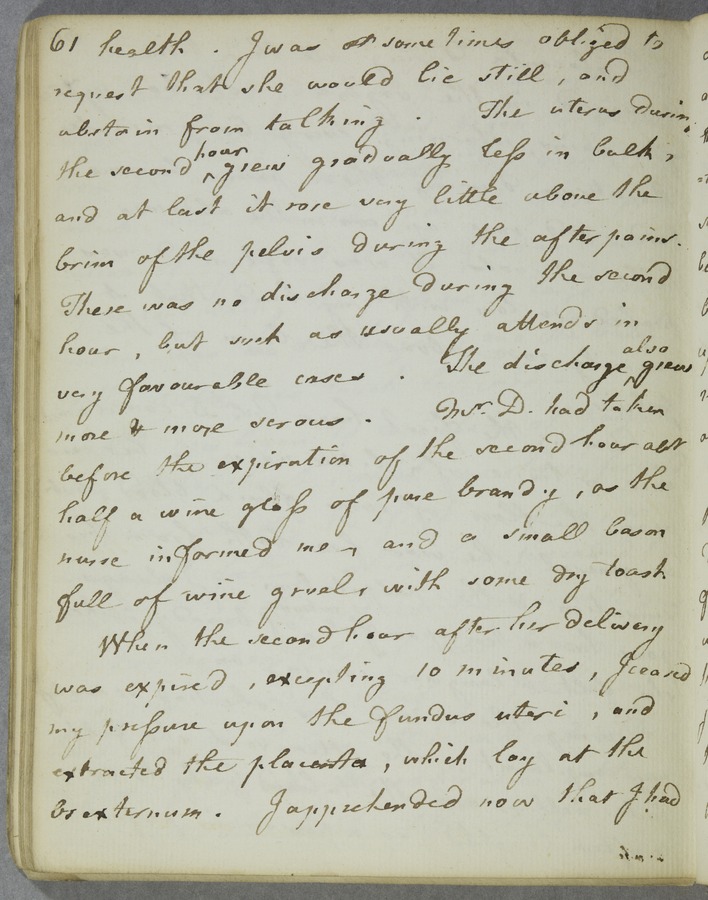 61 health. I was sometimes obliged to
request that she would lie still, and
abstain from talking. The uterus durin
the second hour grew gradually less in bulk,
and at last it rose very little above the
brim of the pelvis during the after pains.
There was no discharge during the second
hour, but such as usually attends in
very favourable cases. The discharge also grew
more & more serous. Mrs. D. had taken
before the expiration of the second hour abt
half a wine glass of pure brandy, as the
nurse informed me, and a small bason
full of wine gruel, with some dry toast
When the second hour after her delivery
was expired, excepting 10 minutes, I ceased
my pressure upon the fundus uteri, and
extracted the placenta, which lay at the
os externum. I apprehended now that I had